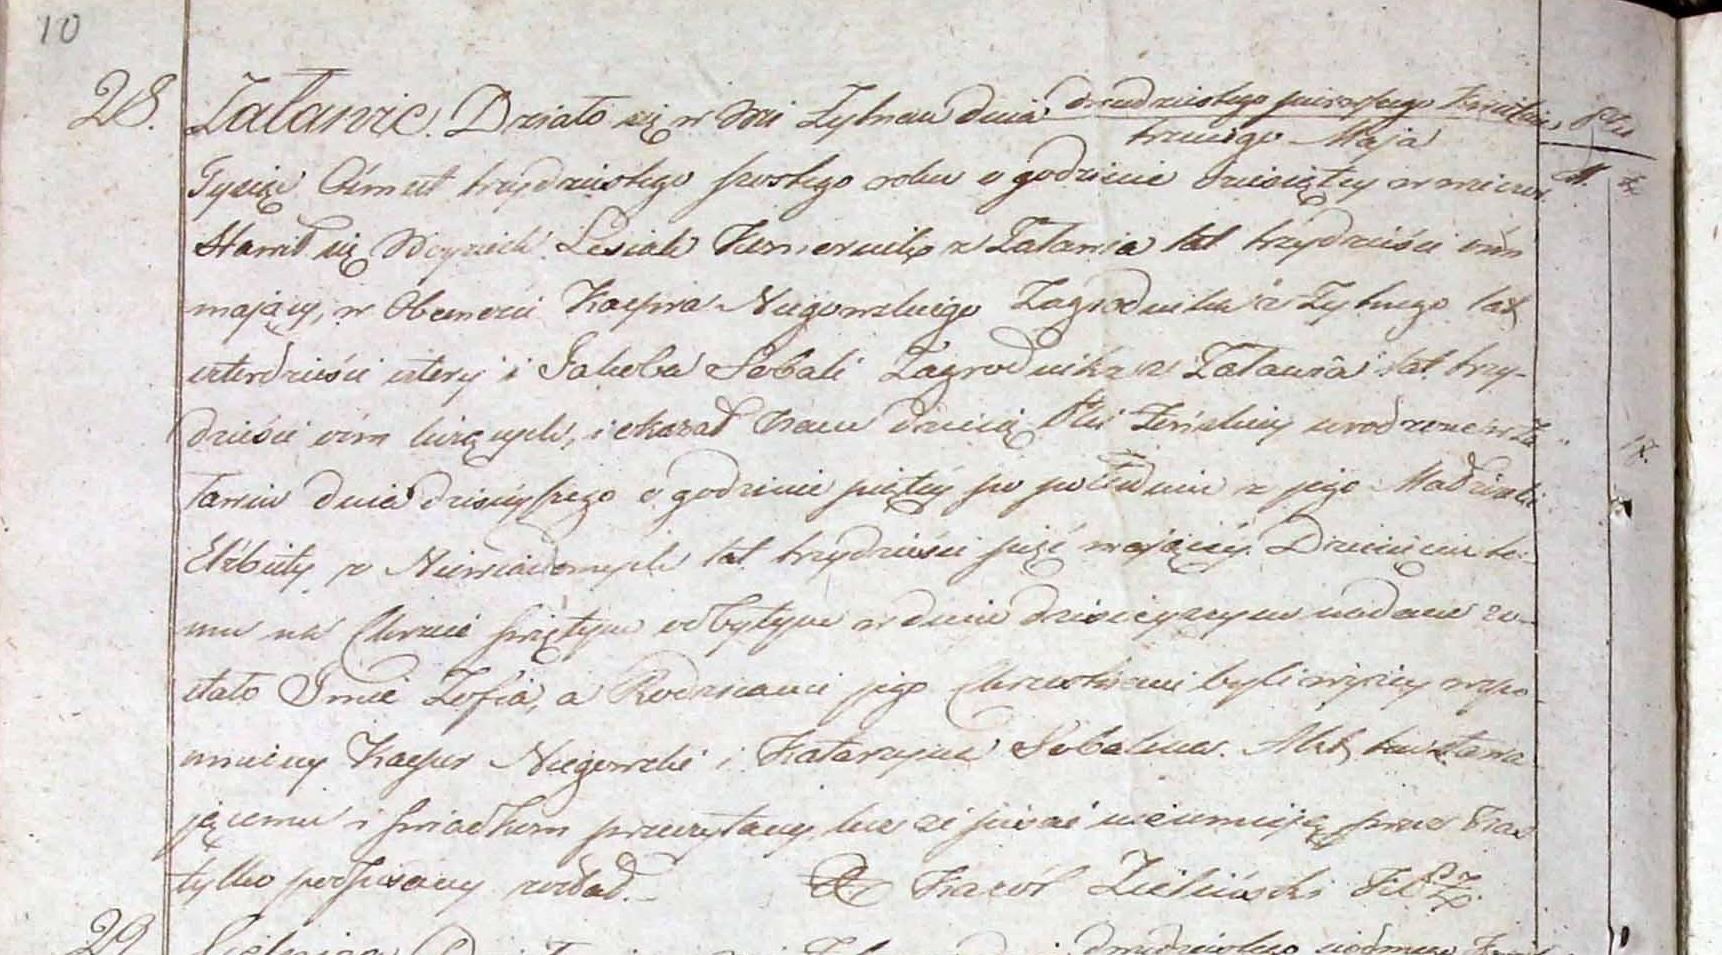 10
28. Załawie. Działo się w Wsi Żytnem dnia dwudziestego pierwszego Kwietnia
trzeciego Maja
Tysiąc Ośmset trzydziestego szostego roku o godzinie dziesiątey w wieczor
Stawił się Woyciech Lesiak Komornik z Załawia lat trzydzieści ośm
maiący, w Obecności Kacpra Niegowskiego Zagrodnika z Żytnego lat
czterdzieści cztery i Jakoba Sobali Zagrodnika z Załawia lat trzy-
dzieści ośm liczących, i okazał Nam dziecię Płci Żeńskiey urodzone w Za
ławiu dnia dzisieyszego o godzinie piątey po południu z jego Małżonki
Elżbiety z Niewiadomych lat trzydzieści sześć mającey. Dziecięciu te-
mu na Chrzcie świętym odbytym w dniu dzisieyszym nadane zo-
stało Imie Zofia, a Rodzicami jego Chrzestnemi byli wyżey wspo
mniony Kacper Niegowski i Katarzyna Sobalina. Akt ten stawa
jącemu i świadkom przeczytany, lecz że pisać nieumieją przez Nas
tylko podpisany został. X Karol Zieliński
29